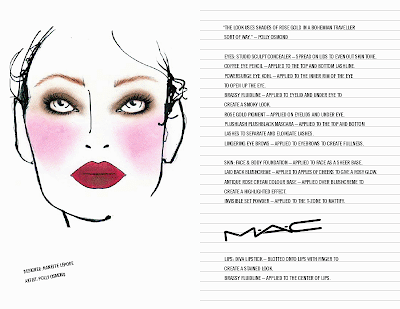 "THE LOOK USES SHADES OF ROSE GOLD IN A BOHEMIAN TRAVELLER
SORT OF WAY." – POLLY OSMOND
EYES: STUDIO SCULPT CONCEALER – SPREAD ON LIDS TO EVEN OUT SKIN TONE.
COFFEE EYE PENCIL – APPLIED TO THE TOP AND BOTTOM LASHLINE.
POWERSURGE EYE KOHL – APPLIED TO THE INNER RIM OF THE EYE
TO OPEN UP THE EYE.
BRASSY FLUIDLINE – APPLIED TO EYELID AND UNDER EYE TO
CREATE A SMOKY LOOK.
ROSE GOLD PIGMENT – APPLIED ON EYELIDS AND UNDER EYE.
PLUSHLASH PLUSHBLACK MASCARA – APPLIED TO THE TOP AND BOTTOM
LASHES TO SEPARATE AND ELONGATE LASHES.
LINGERING EYE BROWS – APPLIED TO EYEBROWS TO CREATE FULLNESS.
SKIN: FACE & BODY FOUNDATION – APPLIED TO FACE AS A SHEER BASE.
LAID BACK BLUSHCREME – APPLIED TO APPLES OF CHEEKS TO GIVE A ROSY GLOW.
ANTIQUE ROSE CREAM COLOUR BASE – APPLIED OVER BLUSHCREME TO
CREATE A HIGHLIGHTED EFFECT.
INVISIBLE SET POWDER – APPLIED TO THE T-ZONE TO MATTIFY.
M·A·C
LIPS: DIVA LIPSTICK – BLOTTED ONTO LIPS WITH FINGER TO
CREATE A STAINED LOOK.
BRASSY FLUIDLINE – APPLIED TO THE CENTER OF LIPS.
DESIGNER: NANETTE LEPORE
ARTIST: POLLY OSMOND